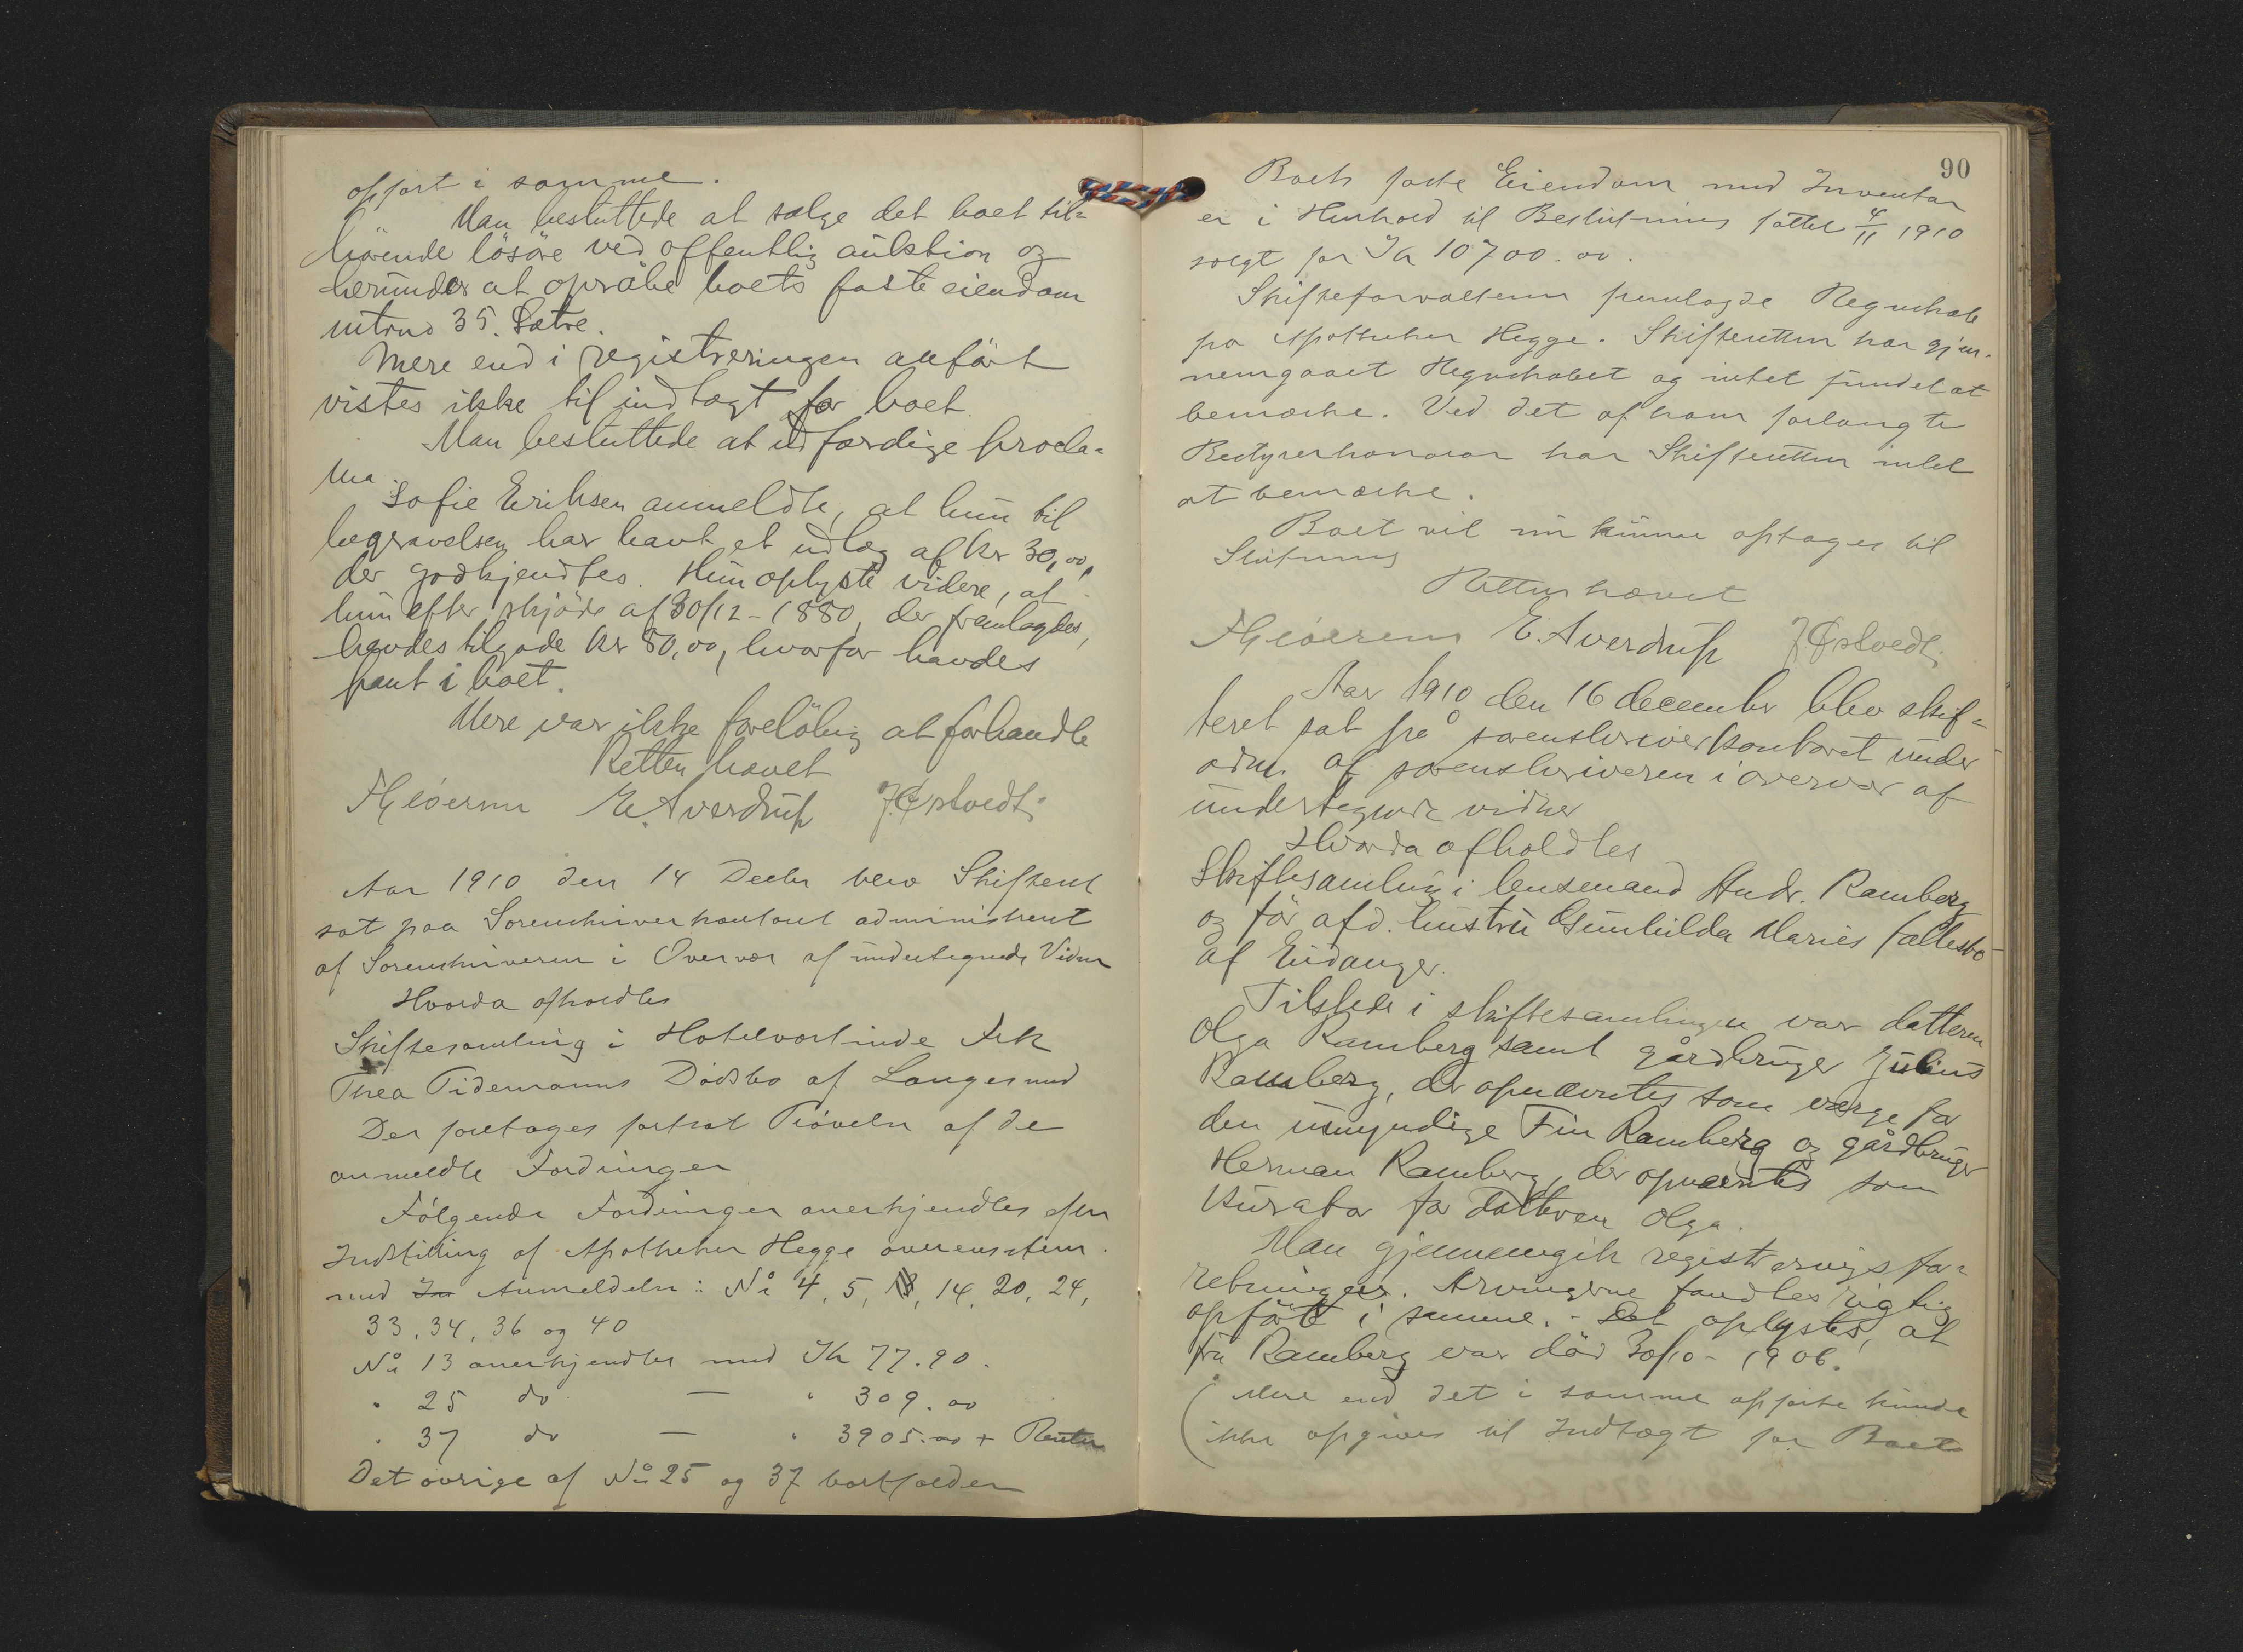 opført i samme.
Man besluttede at sælge det boet til=
hørende løsøre ved offentlig auktion og
herunder at opråbe boets faste eiendom
mtrno 35. Sætre.
Mere end i registreringen anført
vistes ikke til indtægt for boet.
Man besluttede at udfærdige procla=
ma.
Sofie Eriksen anmeldte, at hun til
begravelsen har havt et udlæg af kr 30,00,
der godkjendtes. Hun oplyste videre, at
hun efter skjøde af 30/12-1880, der fremlagdes,
havdes tilgode kr 80,00, hvorfor havdes
pant i boet.
Mere var ikke foreløbig at forhandle
Retten hævet
E. Averdrup J. Østvedt.
Aar 1910 den 14 Decbr blev Skifteret
sat paa Sorenskriverkontoret administreret
af Sorenskriveren i Overvær af undertegnede Vidner
Hvorda afholdtes
Skiftesamling i Hotelværtinde Frk
Thea Tidemanns Dødsbo af Langesund
Der foretages fortsat Prøvelse af de
anmeldte Fordringer
Følgende Fordringer anerkjendtes efter
Indstilling af Apotheker Hegge overensstem.
med Anmeldelse: No 4, 5, 14, 20, 24,
33, 34, 36 og 40
No 13 anerkjendtes med Kr 77.90.
" 25 do — " 309.00
" 37 do — " 3905.00 + Renter
Det øvrige af No 25 og 37 bortfalder
90
Boets faste Eiendom med Inventar
er i Henhold til Beslutning fattet 4/11 1910
solgt for Kr 10700.00.
Skifteforvalteren fremlagde Regnskab
fra Apotheker Hegge. Skifteretten har gjen-
nemgaaet Regnskabet og intet fundet at
bemærke. Ved det af ham forlangte
Bestyrerhonorar har Skifteretten intet
at bemærke.
Boet vil nu kunne optages til
Slutning
Retten hævet
E. Averdrup J. Østvedt.
Aar 1910 den 16 december blev skif=
teret sat på sorenskriverkontoret under
adm. af sorenskriveren i overvær af
undertegnede vidner
Hvorda afholdtes
Skiftesamling i lensmand Andr. Ramberg
og før afd. hustru Gunhilda Maries fællesbo
af Eidanger.
Tilstede i skiftesamlingen var datteren
Olga Ramberg samt gårdbruger Julius
Ramberg, der opnævntes som værge for
den umyndige Fin Ramberg og gårdbruger
Herman Ramberg, der opnævntes som
kurator for datteren Olga.
Man gjennemgik registreringsfor=
retningen. Arvingerne fandtes rigtig
opført i samme. - Det oplystes, at
fru Ramberg var død 30/10-1906.
(Mere end det i samme opførte kunde
ikke opgives til Indtægt for Boet